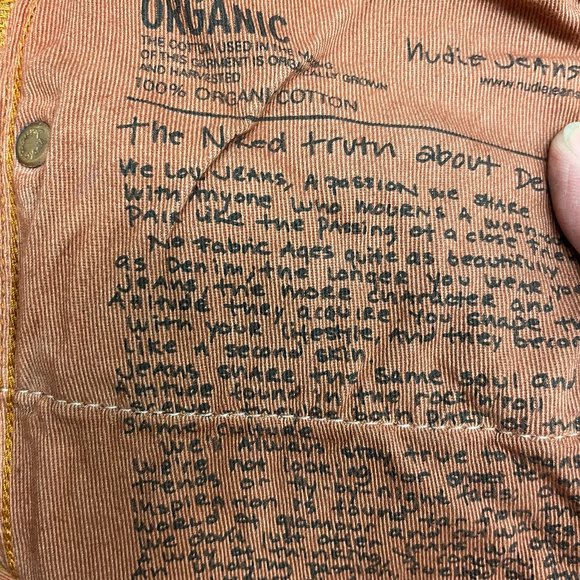 ORGANIC
THE COTTON USED IN THE MAKING
OF THIS GARMENT IS ORGANICALLY GROWN
AND HARVESTED
100% ORGANIC COTTON
Nudie Jeans
www.nudiejeans
The Naked truth about De
We Lov Jeans, A passion we share
with Anyone who mourns A worn-ou
pair like the passing of a close frie
No Fabric Ages quite as beautifully
as Denim, the longer you wear you
Jeans, the more character and
Attitude they acquire You shape th
with your lifestyle, And they becom
like A second skin.
Jeans share the same soul and
attitude found in the rock'n'roll
both part of the
same culture
We'll Always stay true to
We're not looking
trends or fly by night fads.
Inspiration is found far from
world of glamour and
We don't just offer
A way of thinking,
An undying